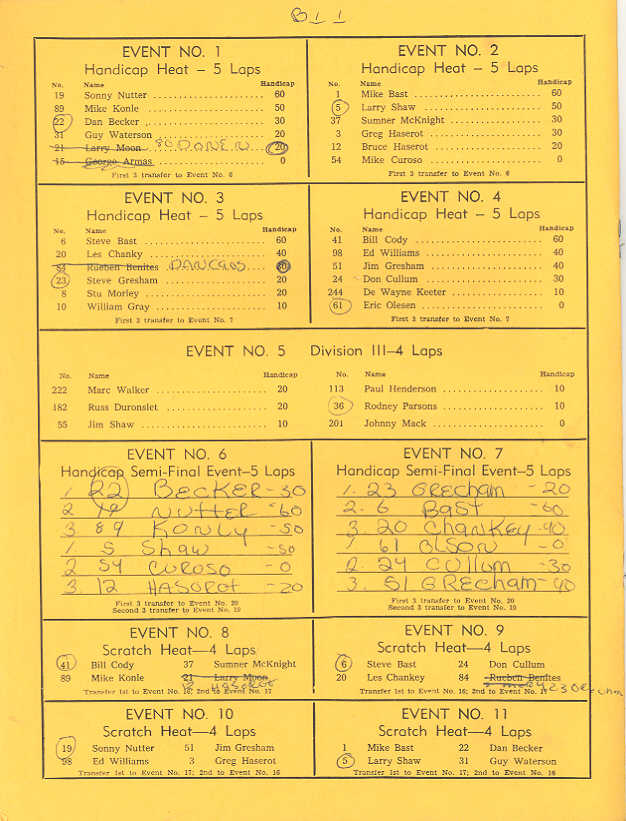 B11
EVENT NO. 1
Handicap Heat – 5 Laps
No. Name Handicap
19 Sonny Nutter 60
89 Mike Konle 50
22 Dan Becker 30
31 Guy Waterson 20
21 Larry Moon 20
15 George Armas 0
First 3 transfer to Event No. 6
EVENT NO. 2
Handicap Heat – 5 Laps
No. Name Handicap
1 Mike Bast 60
5 Larry Shaw 50
37 Sumner McKnight 30
3 Greg Haserot 30
12 Bruce Haserot 20
54 Mike Curoso 0
First 3 transfer to Event No. 6
EVENT NO. 3
Handicap Heat – 5 Laps
No. Name Handicap
6 Steve Bast 60
20 Les Chanky 40
84 Rueben Benites
23 Steve Gresham 20
8 Stu Morley 20
10 William Gray 10
First 3 transfer to Event No. 7
EVENT NO. 4
Handicap Heat – 5 Laps
No. Name Handicap
41 Bill Cody 60
98 Ed Williams 40
51 Jim Gresham 40
24 Don Cullum 30
244 De Wayne Keeter 10
61 Eric Olesen 0
First 3 transfer to Event No. 7
EVENT NO. 5 Division III—4 Laps
No. Name Handicap No. Name Handicap
222 Marc Walker 20 113 Paul Henderson 10
182 Russ Duronslet 20 36 Rodney Parsons 10
55 Jim Shaw 10 201 Johnny Mack 0
EVENT NO. 6
Handicap Semi-Final Event—5 Laps
1 22 BECKER - 30
2 19 NUTTER 60
3 89 KONLY - 50
1 5 SHAW - 50
2 54 CUROSO - 0
3 12 HASOROT - 20
First 3 transfer to Event No. 20
Second 3 transfer to Event No. 19
EVENT NO. 7
Handicap Semi-Final Event—5 Laps
1. 23 GRECHAM - 20
2. 6 BAST - 60
3. 20 CHANKEY - 40
1 61 OLSON - 0
2. 24 CULLUM - 30
3. 51 GRECHAM - 40
First 3 transfer to Event No. 20
Second 3 transfer to Event No. 19
EVENT NO. 8
Scratch Heat—4 Laps
41 Bill Cody 37 Sumner McKnight
89 Mike Konle 21 Larry Moon
12 HASOROT
Transfer 1st to Event No. 16; 2nd to Event No. 17
EVENT NO. 9
Scratch Heat—4 Laps
6 Steve Bast 24 Don Cullum
20 Les Chankey 84 Rueben Benites
Transfer 1st to Event No. 16; 2nd to Event No. 17
EVENT NO. 10
Scratch Heat—4 Laps
19 Sonny Nutter 51 Jim Gresham
98 Ed Williams 3 Greg Haserot
Transfer 1st to Event No. 17; 2nd to Event No. 16
EVENT NO. 11
Scratch Heat—4 Laps
1 Mike Bast 22 Dan Becker
5 Larry Shaw 31 Guy Waterson
Transfer 1st to Event No. 17; 2nd to Event No. 16